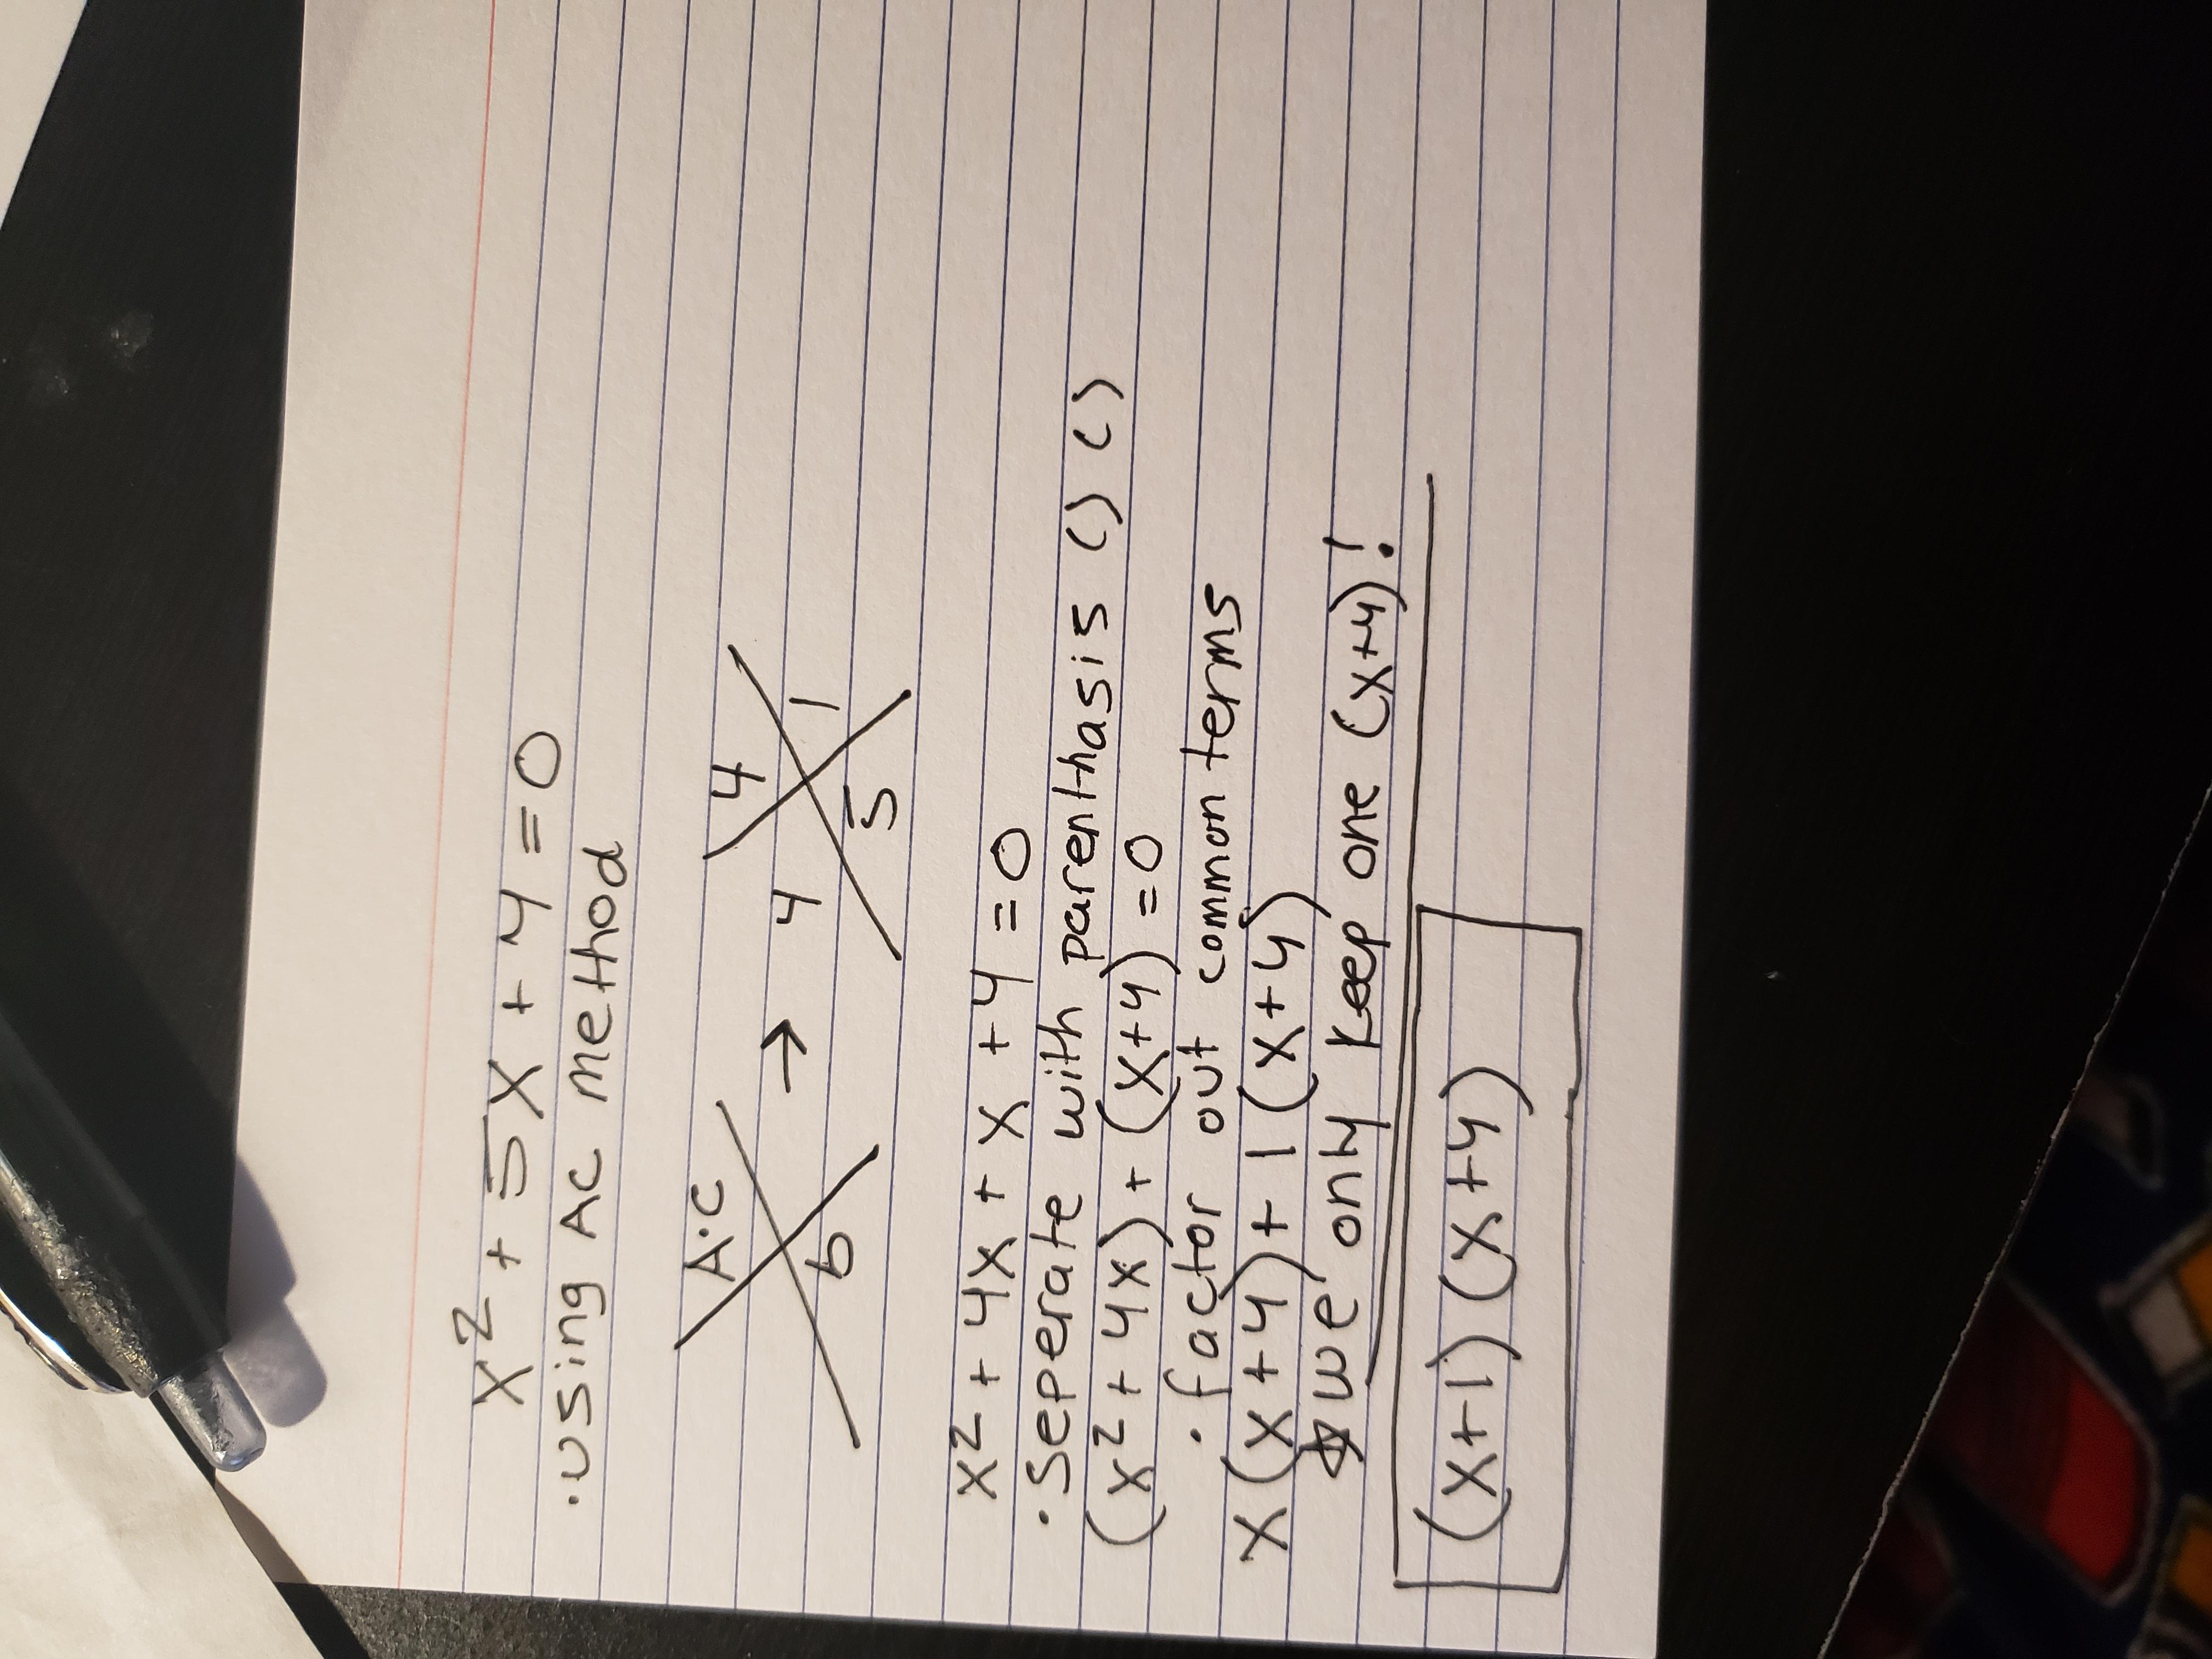 x² + 5x + 4 = 0
· using AC method
A·C 4
→ 4 1
b 5
x² + 4x + x + 4 = 0
· Seperate with parenthasis () ()
(x² + 4x) + (x+4) = 0
· factor out common terms
x(x+4) + 1(x+4)
☆ we only keep one (x+4)!
(x+1)(x+4)